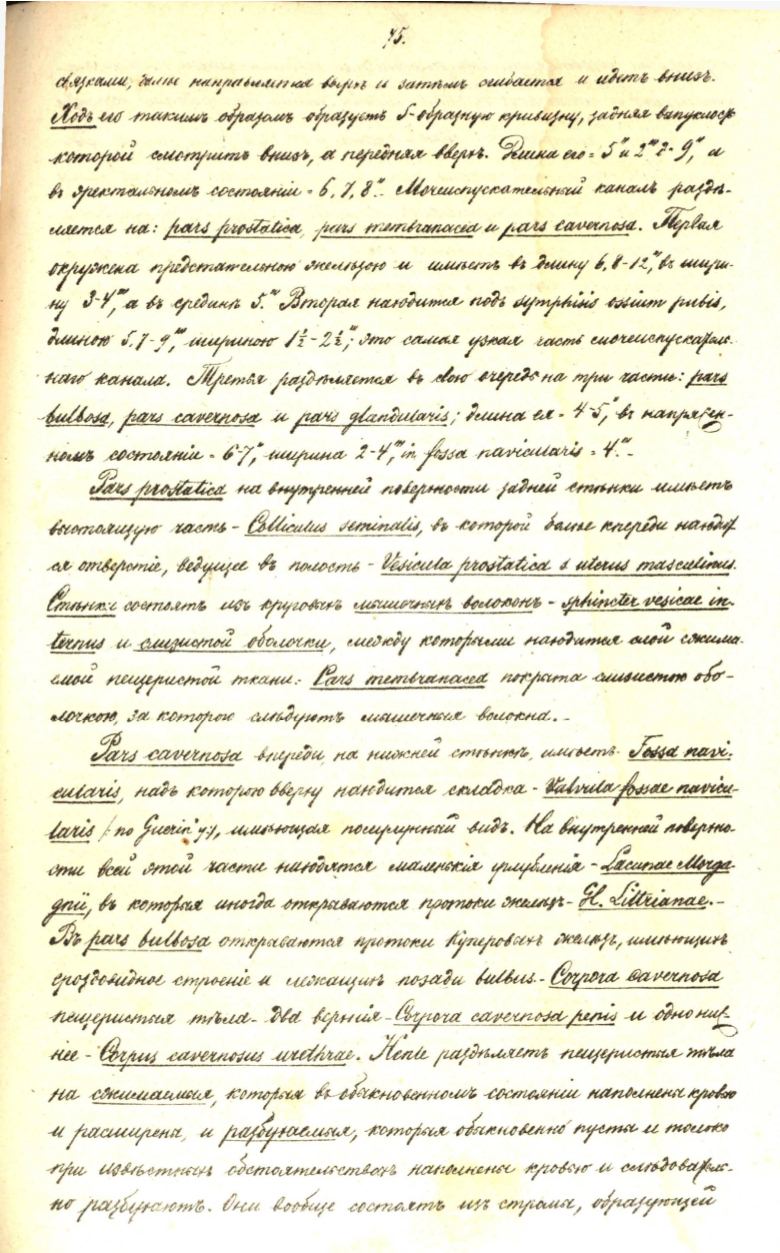 75.
связками, далѣе направляется вверхъ и затѣмъ сгибается и идетъ внизъ.
Ходъ его такимъ образомъ образуетъ S-образную кривизну, задняя выпуклость
которой смотритъ внизъ, а передняя вверхъ. Длина его = 5" и 2''' - 9", а
въ эректальномъ состояніи = 6, 7, 8". Мочеиспускательный каналъ раздѣ-
ляется на: pars prostatica, pars membranacea и pars cavernosa. Первая
окружена предстательною железою и имѣетъ въ длину 6, 8-12''', въ шири-
ну 3-4''', а въ срединѣ 5.''' Вторая находится подъ symphisis ossium pubis,
длиною 5, 7-9''', шириною 1½-2½'''; это самая узкая часть мочеиспускатель-
наго канала. Третья раздѣляется въ свою очередь на три части: pars
bulbosa, pars cavernosa и pars glandularis; длина ея = 4-5", въ напряжен-
номъ состояніи = 6-7", ширина 2-4''', in fossa navicularis = 4.'''-
Pars prostatica на внутренней поверхности задней стѣнки имѣетъ
выстоящую часть - Colliculus seminalis, въ которой болѣе кпереди находит
ся отверстіе, ведущее въ полость - Vesicula prostatica s uterus masculinus.
Стѣнки состоятъ изъ круговыхъ мышечныхъ волоконъ - sphincter vesicae in-
ternus и слизистой оболочки, между которыми находится слой сжима-
емой пещеристой ткани. Pars membranacea покрыта слизистою обо-
лочкою, за которою слѣдуютъ мышечныя волокна.-
Pars cavernosa впереди, на нижней стѣнкѣ, имѣетъ Fossa navi-
cularis, надъ которою вверху находится складка - Valvula fossae navicu-
laris (по Guerin'у), имѣющая полулунный видъ. На внутренней поверхно-
сти всей этой части находятся маленькія углубленія - Lacunae Morga-
gnii, въ которыя иногда открываются протоки железъ - Gl. Littrianae.-
Въ pars bulbosa открываются протоки Куперовыхъ железъ, имѣющихъ
гроздовидное строеніе и лежащихъ позади bulbus.- Corpora cavernosa
пещеристыя тѣла - два верхнія - Corpora cavernosa penis и одно ниж-
нее - Corpus cavernosus urethrae. Henle раздѣляетъ пещеристыя тѣла
на сжимаемыя, которыя въ обыкновенномъ состояніи наполнены кровью
и расширены, и разбухаемыя, которыя обыкновенно пусты и только
при извѣстныхъ обстоятельствахъ наполнены кровью и слѣдователь-
но разбухаютъ. Они вообще состоятъ изъ стромы, образующей